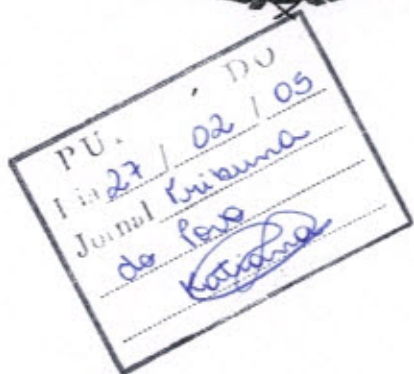 PU. DO
27 / 02 / 05
Jornal Tribuna
do Povo
Katiana